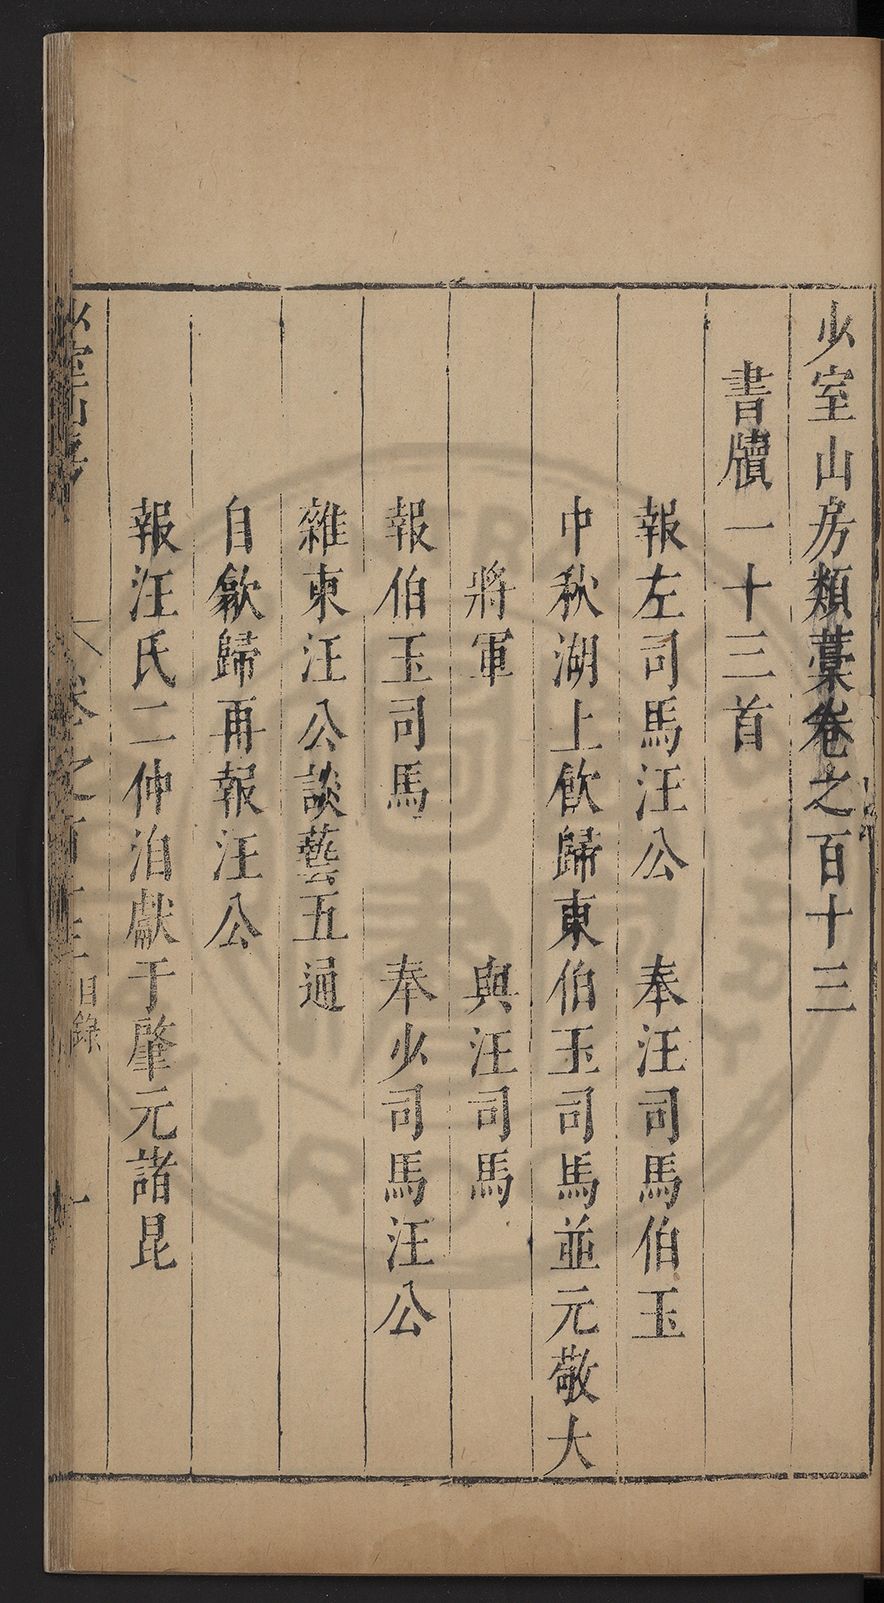 少室山房類藁卷之百十三
書牘一十三首
報左司馬汪公　奉汪司馬伯玉
中秋湖上飲歸東伯玉司馬並元敬大
將軍　與汪司馬
報伯玉司馬　奉少司馬汪公
雜東汪公談藝五通
自歙歸再報汪公
報汪氏二仲洎獻于肇元諸昆
少室山房 卷之百十三 目錄 一